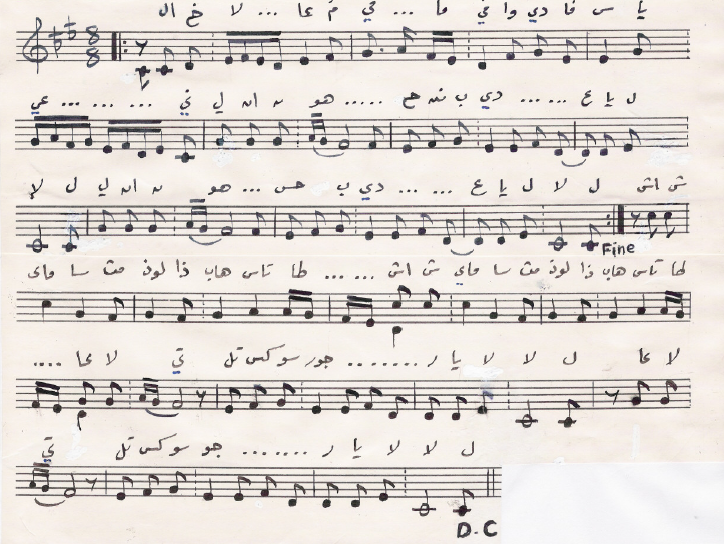 يا س فا دي وا في ما ... في م عا ... لا خ ال
8
8
ل يا ع ... ... دي ب ... هو ... ان ل ني ... ... ... عي
ش اش ل لا ل يا ع ... ... دي ب حس ... هو ... ان لي ل لإ
Fine
طا تاس هاب ذا لوذ مث سا ماي ش اش ... ... طا تاس هاب ذا لوذ مث سا ماي
لا عا ل لا لا يا ر ........ جور سو كس تل تي لا عا ....
ل لا لا يا ر ....... جو سو كس تل تي
D.C